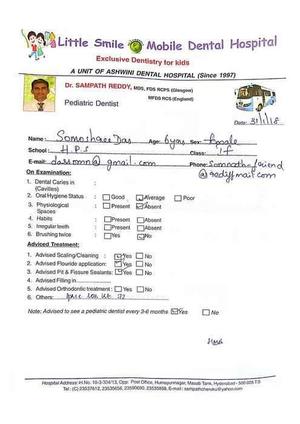 Little Smile Mobile Dental Hospital
Exclusive Dentistry for kids
A UNIT OF ASHWINI DENTAL HOSPITAL (Since 1997)
Dr. SAMPATH REDDY, MDS, FDS RCPS (Glasgow)
MFDS RCS (England)
Pediatric Dentist
Date:
Name: Somoshree Das Age: 6yrs Sex: female
School: H.P.S Class: 1f
E-mail: dassomn@gmail.com Phone: Somnath_friend
@rediffmail.com
On Examination:
1. Dental Caries in :
(Cavities)
2. Oral Hygiene Status : Good Average Poor
3. Physiological : Present Absent
Spaces
4. Habits : Present Absent
5. Irregular teeth : Present Absent
6. Brushing twice : Yes No
Adviced Treatment:
1. Advised Scaling/Cleaning : Yes No
2. Advised Flouride application: Yes No
3. Advised Pit & Fissure Sealants: Yes No
4. Advised Filling in
5. Advised Orthodontic treatment : Yes No
6. Others:
Note: Advised to see a pediatric dentist every 3-6 months Yes No
Hospital Address: H.No. 10-3-304/13, Opp. Post Office, Humayunnagar, Masab Tank, Hyderabad - 500 028 T.S